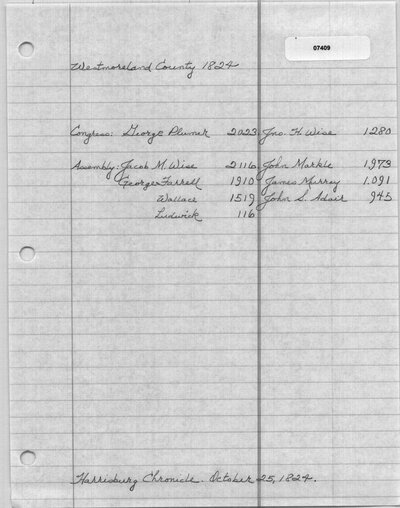 07409
Westmoreland County 1824
Congress: George Plumer 2023 Jno. H. Wise 1280
Assembly: Jacob M. Wise 2116 John Markle 1973
George Farrell 1910 James Murray 1091
Wallace 1519 John S. Adair 945
Ludwick 116
Harrisburg Chronicle. October 25, 1824.